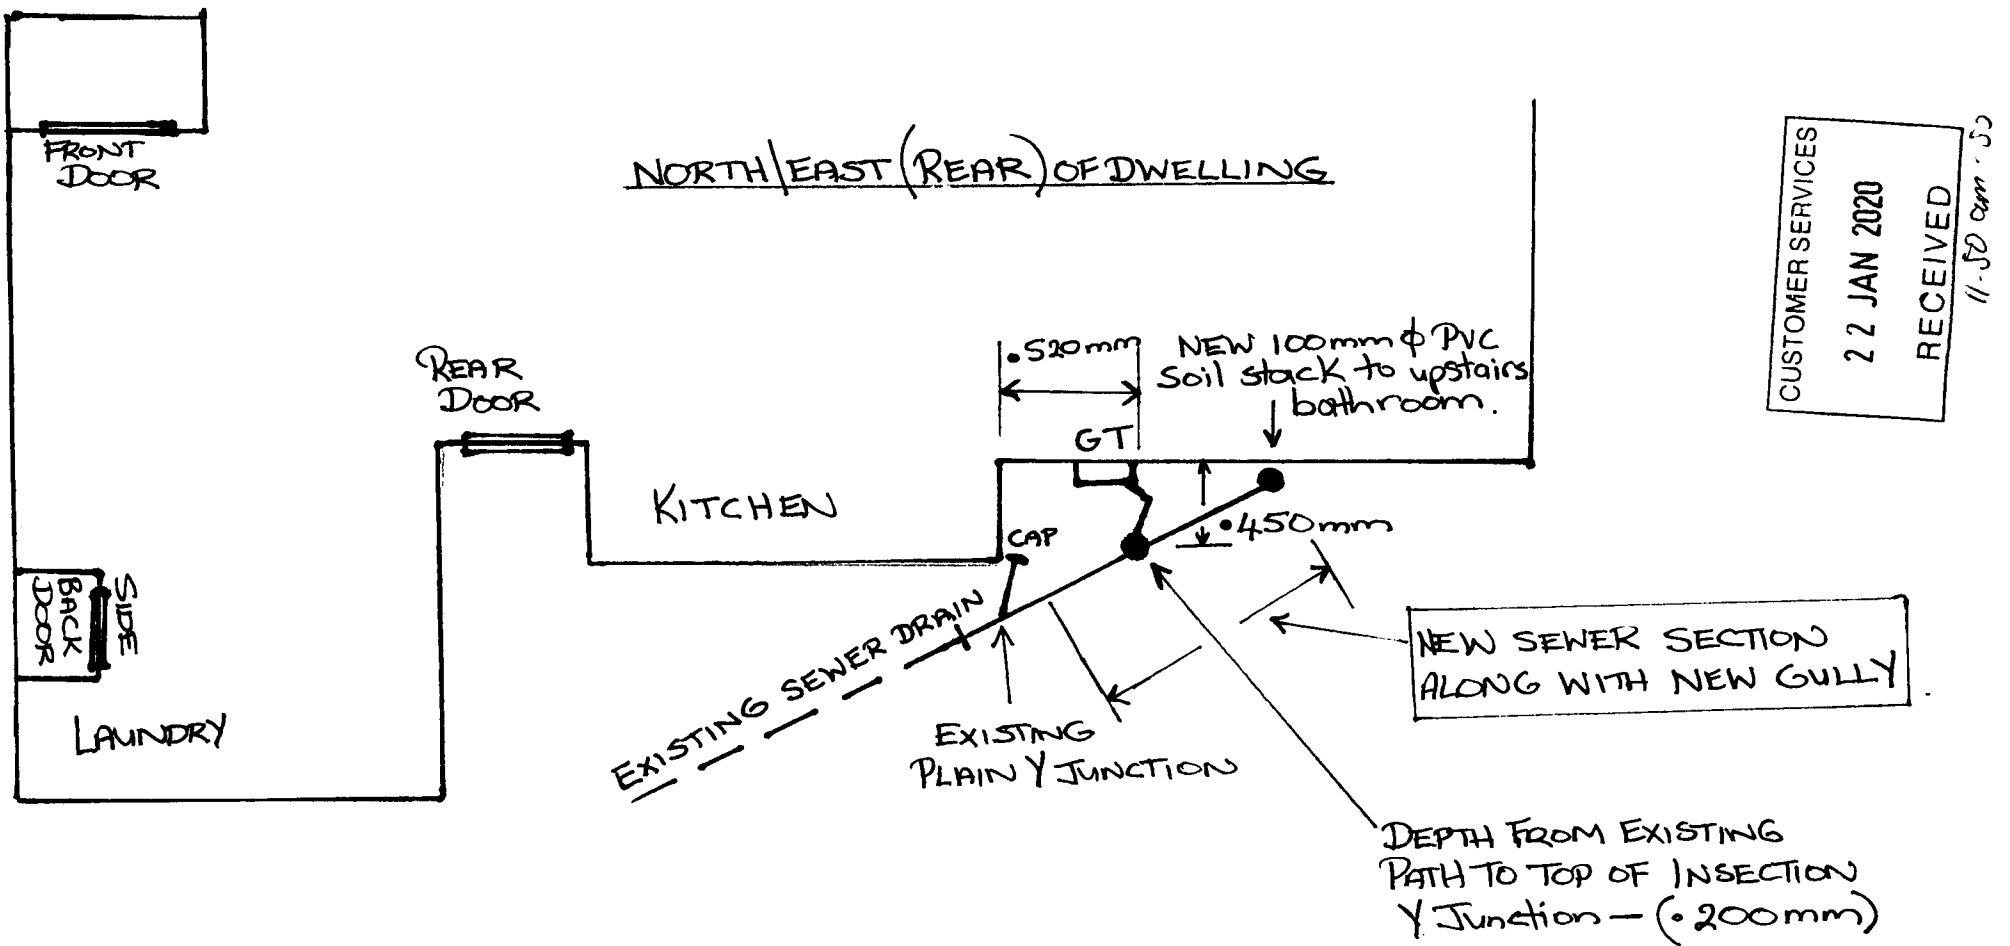 FRONT
DOOR
NORTH/EAST (REAR) OF DWELLING
CUSTOMER SERVICES
22 JAN 2020
RECEIVED
11.50 am
REAR
DOOR
.520mm
NEW 100mm ϕ PVC
Soil stack to upstairs
bathroom.
GT
KITCHEN
CAP
.450mm
SIDE
BACK
DOOR
LAUNDRY
EXISTING SEWER DRAIN
EXISTING
PLAIN Y JUNCTION
NEW SEWER SECTION
ALONG WITH NEW GULLY
DEPTH FROM EXISTING
PATH TO TOP OF INSECTION
Y Junction – (.200mm)